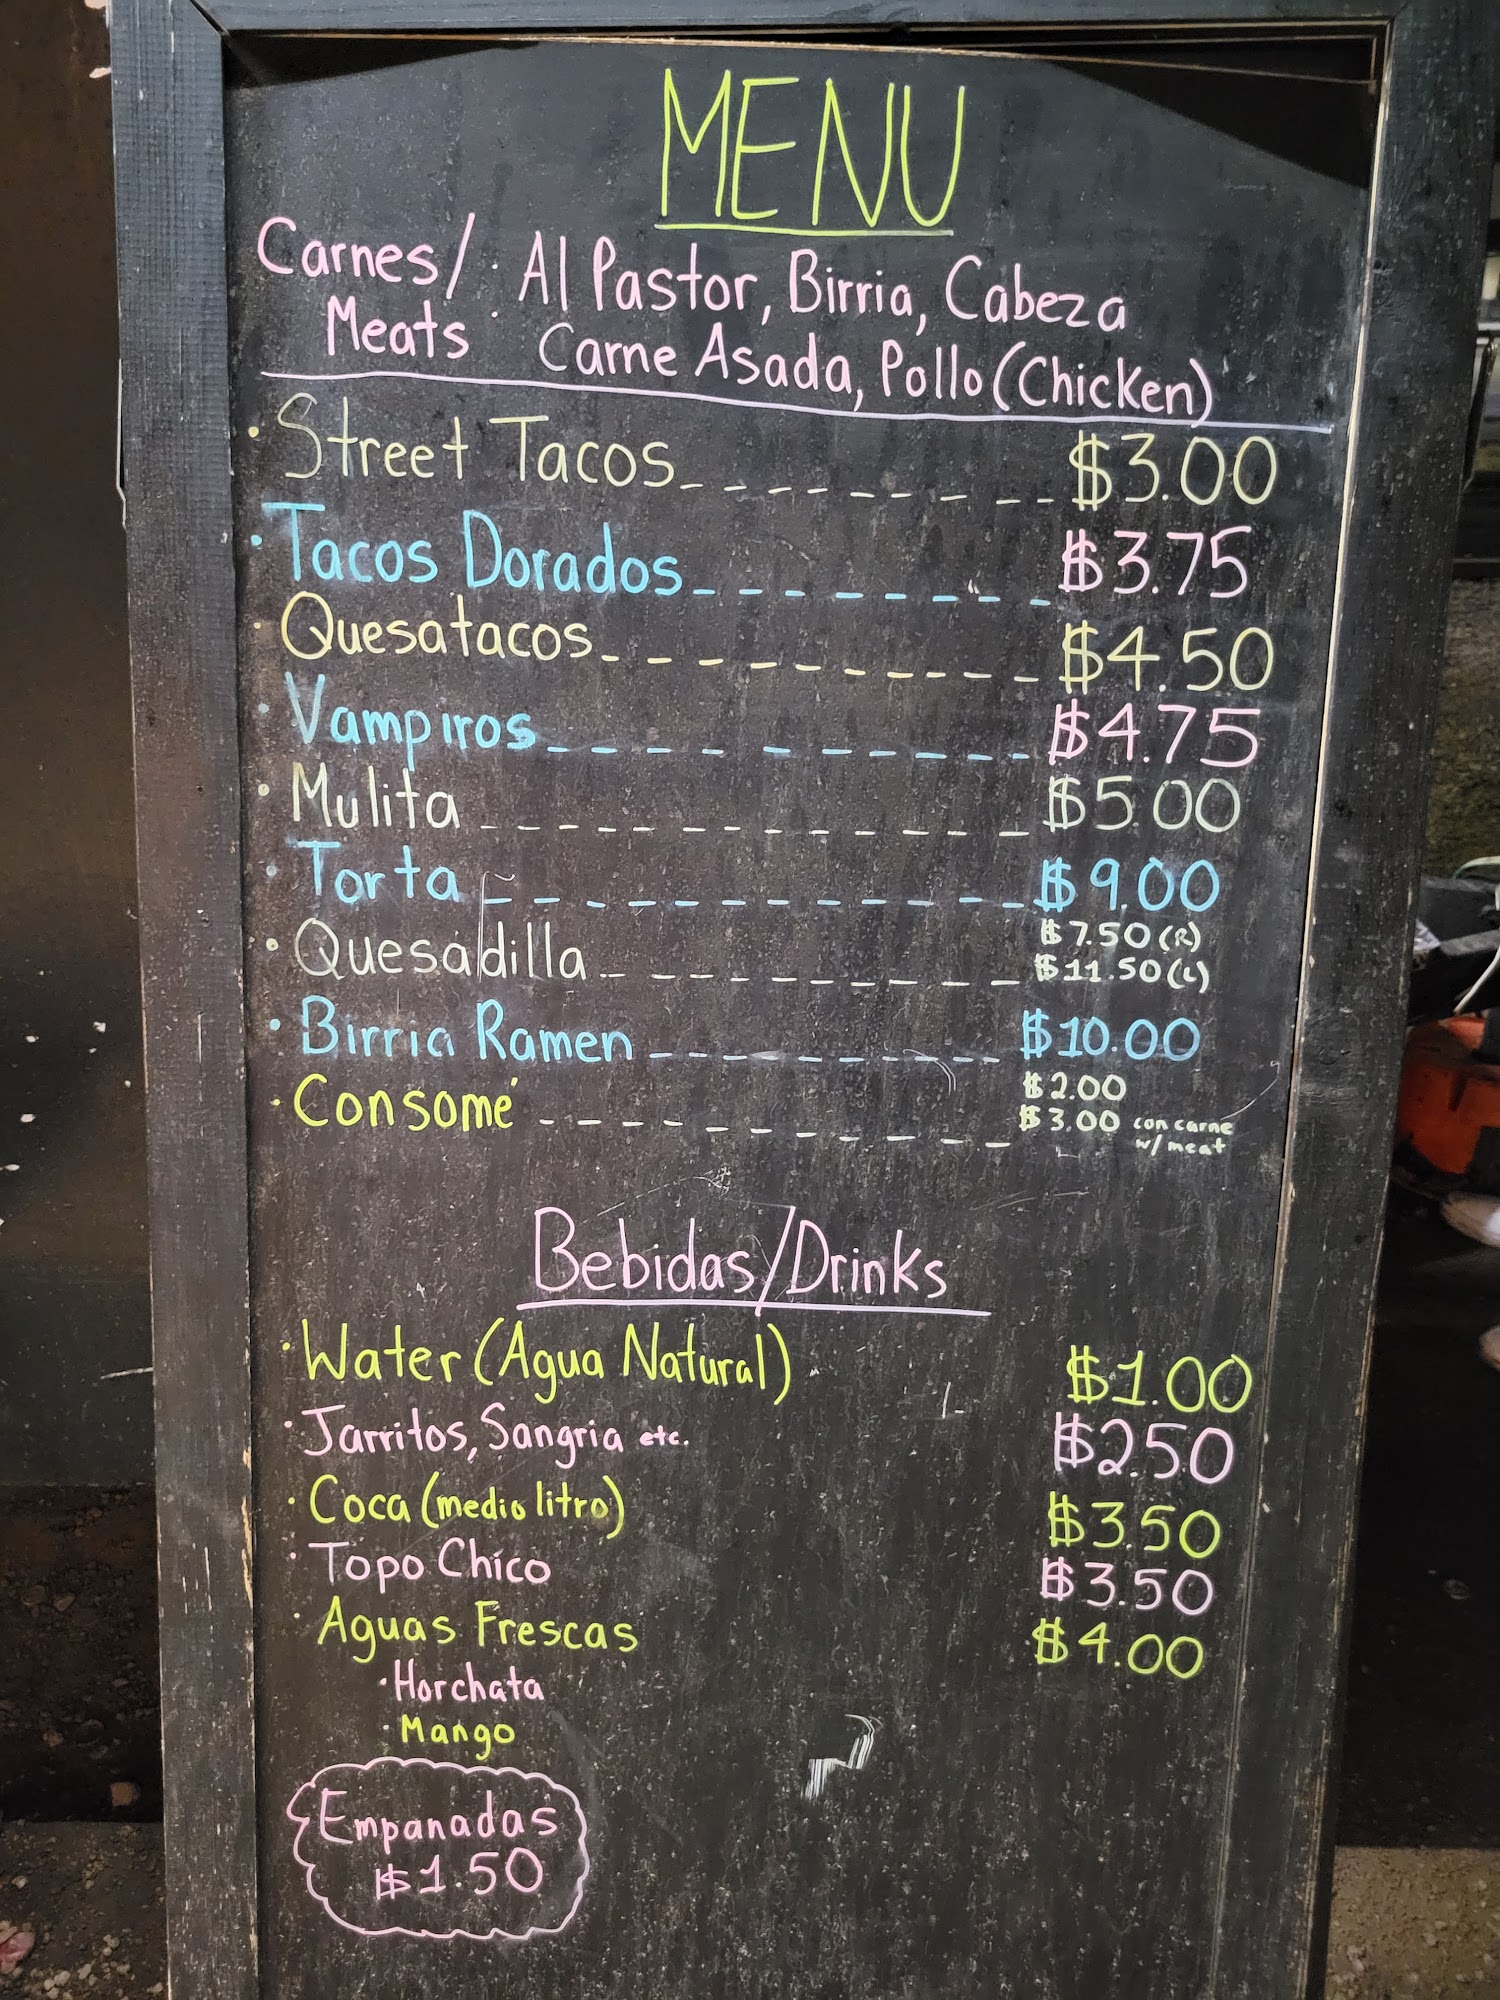 MENU
Carnes/ : Al Pastor, Birria, Cabeza
Meats Carne Asada, Pollo (Chicken)
· Street Tacos _ _ _ _ _ _ _ _ _ $3.00
· Tacos Dorados _ _ _ _ _ _ _ _ _ $3.75
· Quesatacos _ _ _ _ _ _ _ _ _ _ $4.50
· Vampiros _ _ _ _ _ _ _ _ _ _ $4.75
· Mulita _ _ _ _ _ _ _ _ _ _ _ _ _ $5.00
· Torta _ _ _ _ _ _ _ _ _ _ _ _ $9.00
· Quesadilla _ _ _ _ _ _ _ _ _ _ $7.50 (R)
$11.50 (L)
· Birria Ramen _ _ _ _ _ _ _ _ _ $10.00
· Consomé _ _ _ _ _ _ _ _ _ _ _ $2.00
$3.00 con carne
w/ meat
Bebidas/Drinks
· Water (Agua Natural) $1.00
· Jarritos, Sangria etc. $2.50
· Coca (medio litro) $3.50
· Topo Chico $3.50
· Aguas Frescas $4.00
· Horchata
· Mango
Empanadas
$1.50